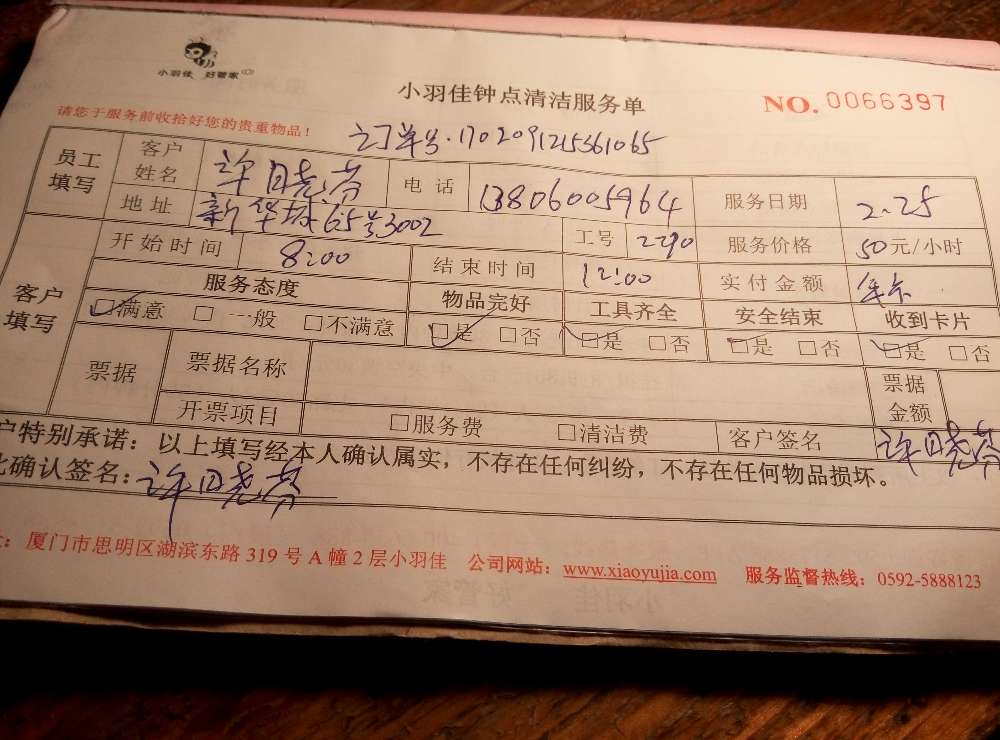 小羽佳 好管家
小羽佳钟点清洁服务单
NO. 0066397
请您于服务前收拾好您的贵重物品！
订单号.1702091215361065
员工填写 客户姓名 许日晓芬 电话 13806005964 服务日期 2.25
地址 新华城65号3002 工号 2290 服务价格 50元/小时
客户填写 开始时间 8:00 结束时间 12:00 实付金额 年卡
服务态度 物品完好 工具齐全 安全结束 收到卡片
☑满意 □一般 □不满意 ☑是 □否 ☑是 □否 ☑是 □否 ☑是 □否
票据 票据名称 票据金额
开票项目 □服务费 □清洁费 客户签名 许日晓芬
户特别承诺：以上填写经本人确认属实，不存在任何纠纷，不存在任何物品损坏。
此确认签名：许日晓芬
：厦门市思明区湖滨东路 319 号 A 幢 2 层小羽佳 公司网站：www.xiaoyujia.com 服务监督热线：0592-5888123